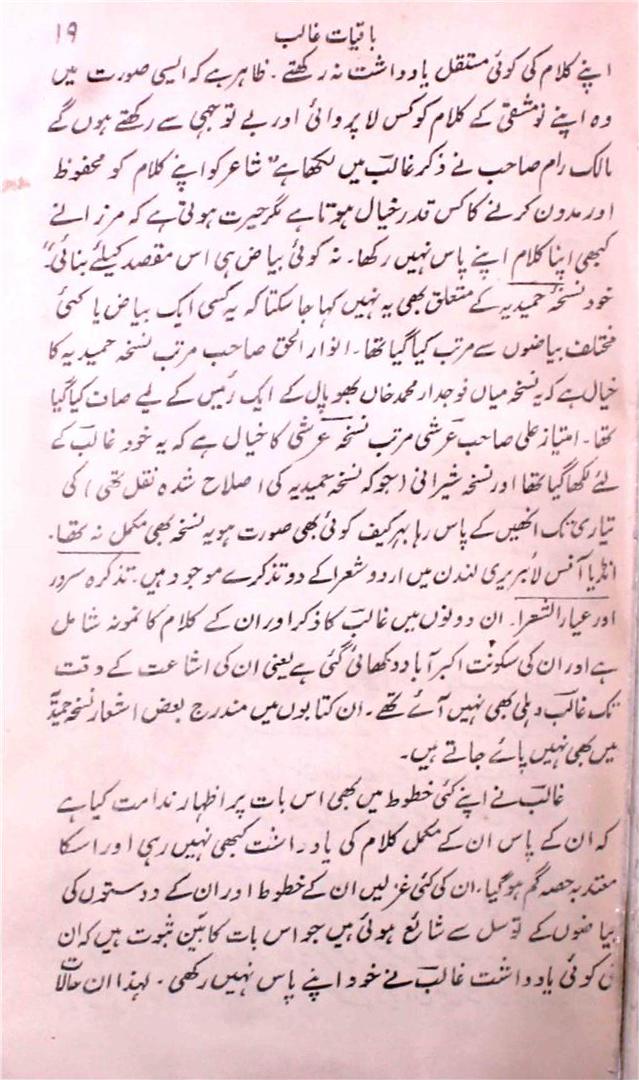 باقیات غالب
۱۹
اپنے کلام کی کوئی مستقل یادداشت نہ رکھتے۔ ظاہر ہے کہ ایسی صورت میں
وہ اپنے نو مشقی کے کلام کو کس لاپروائی اور بے توجہی سے رکھتے ہوں گے
مالک رام صاحب نے ذکر غالب میں لکھا ہے "شاعر کو اپنے کلام کو محفوظ
اور مدون کرنے کا کس قدر خیال ہوتا ہے مگر حیرت ہوتی ہے کہ مرزا نے
کبھی اپنا کلام اپنے پاس نہیں رکھا۔ نہ کوئی بیاض ہی اس مقصد کیلئے بنائی"۔
خود نسخہ حمیدیہ کے متعلق بھی یہ نہیں کہا جا سکتا کہ یہ کسی ایک بیاض یا کئی
مختلف بیاضوں سے مرتب کیا گیا تھا۔ انوار الحق صاحب مرتب نسخہ حمیدیہ کا
خیال ہے کہ یہ نسخہ میاں فوجدار محمد خاں بھوپال کے ایک رئیس کے لیے صاف کیا گیا
تھا۔ امتیاز علی صاحب عرشی مرتب نسخہ عرشی کا خیال ہے کہ یہ خود غالب کے
لئے لکھا گیا تھا اور نسخہ شیرانی (جو کہ نسخہ حمیدیہ کی اصلاح شدہ نقل تھی) کی
تیاری تک انھیں کے پاس رہا بہرکیف کوئی بھی صورت ہو یہ نسخہ بھی مکمل نہ تھا۔
انڈیا آفس لائبریری لندن میں اردو شعرا کے دو تذکرے موجود ہیں۔ تذکرہ سرور
اور عیار الشعرا۔ ان دونوں میں غالب کا ذکر اور ان کے کلام کا نمونہ شامل
ہے اور ان کی سکونت اکبر آباد دکھائی گئی ہے یعنی ان کی اشاعت کے وقت
تک غالب دہلی بھی نہیں آئے تھے۔ ان کتابوں میں مندرج بعض اشعار نسخہ حمیدیہ
میں بھی نہیں پائے جاتے ہیں۔
غالب نے اپنے کئی خطوط میں بھی اس بات پر اظہار ندامت کیا ہے
کہ ان کے پاس ان کے مکمل کلام کی یادداشت کبھی نہیں رہی اور اسکا
معتد بہ حصہ گم ہو گیا، ان کی کئی غزلیں ان کے خطوط اور ان کے دوستوں کی
بیاضوں کے توسل سے شائع ہوئی ہیں جو اس بات کا بیّن ثبوت ہیں کہ ان
کی کوئی یادداشت غالب نے خود اپنے پاس نہیں رکھی۔ لہذا ان حالات